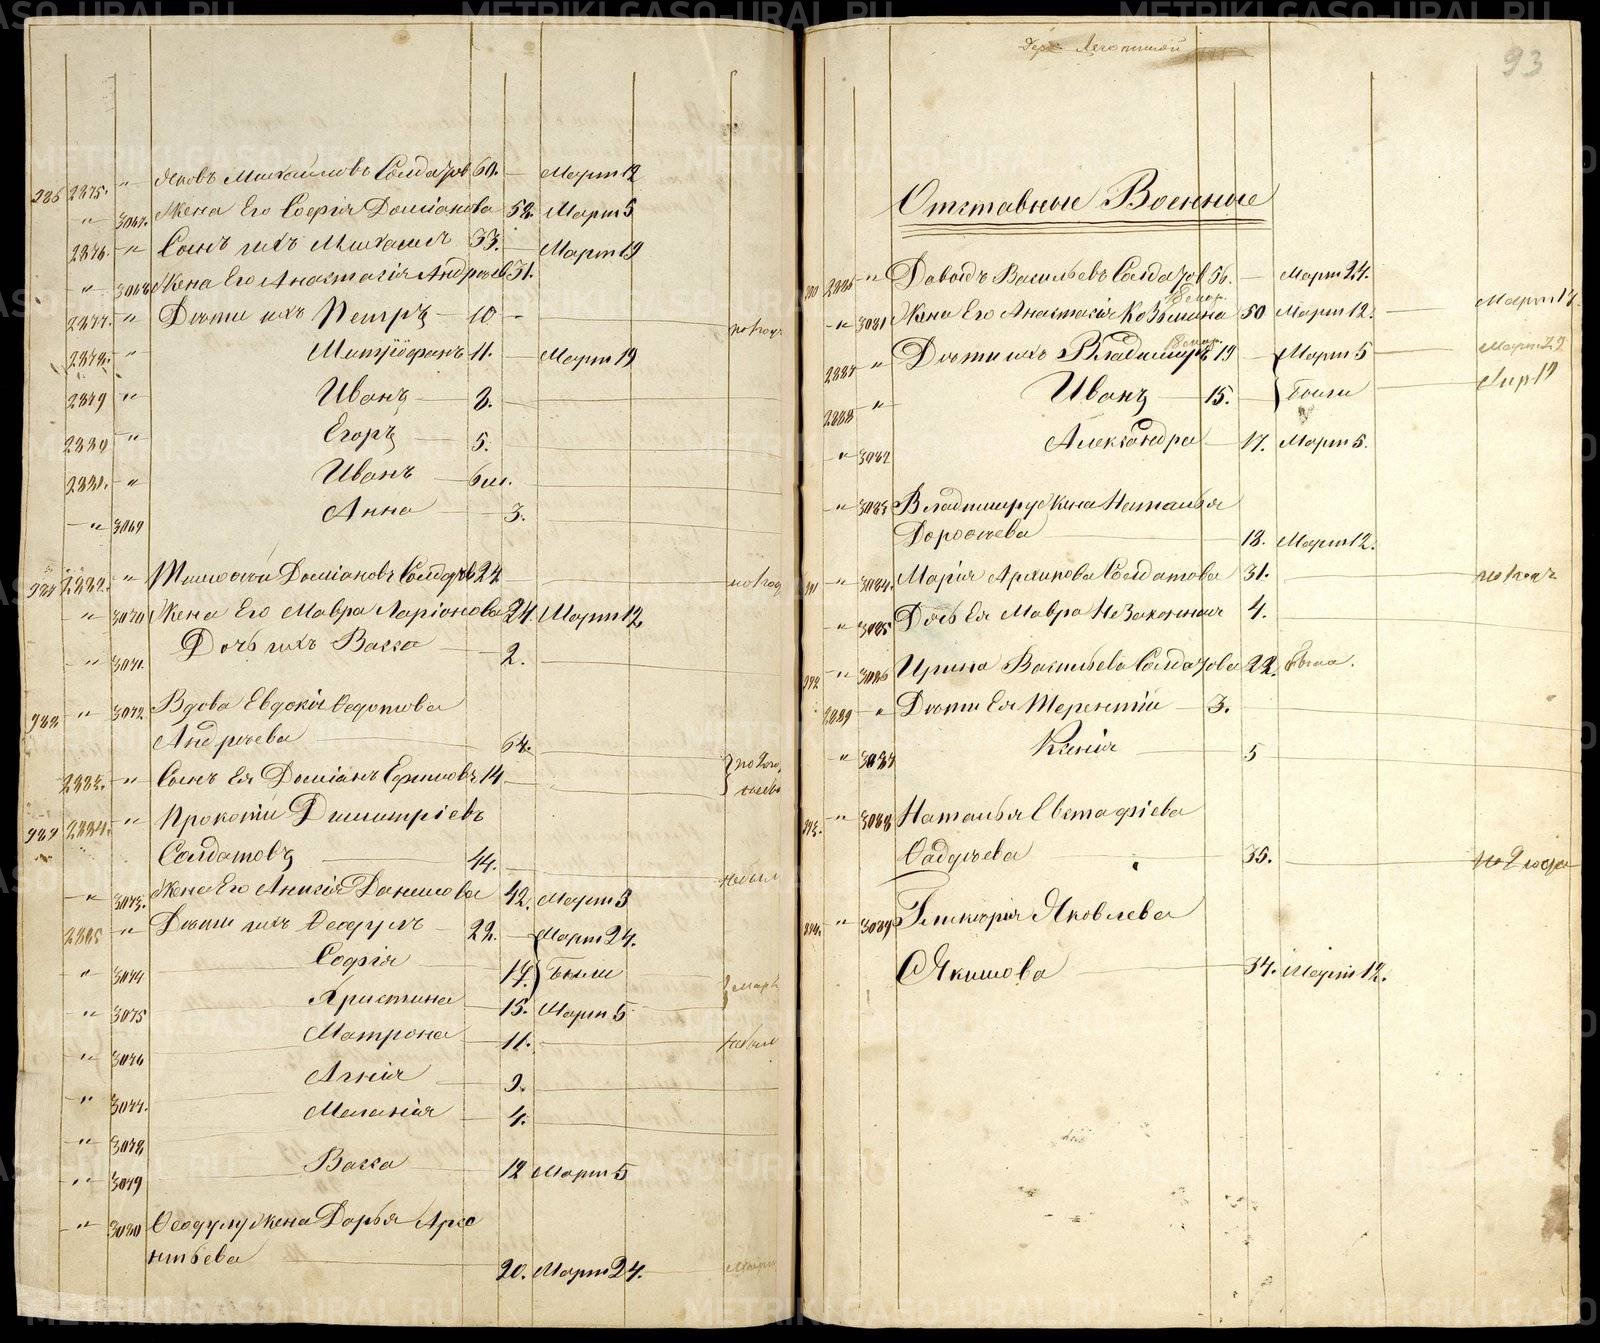 286 2875. " Яковъ Михайловъ Солдатовъ 60. — Март 12
" 3067. Жена Его Софія Доміанова 58. Март 5
2876. " Сынъ ихъ Михаилъ 33. — Март 19
" 3068 Жена Его Анастасія Андреева 31.
2877. " Дѣти ихъ Петръ 10 —
2878. " Митрофанъ 11. — Март 19
2879 " Иванъ 8.
2880 " Егоръ 5.
2881. " Иванъ 6 м.
" 3069 Анна 3.
287 2882. " Тимофей Доміановъ Солдатовъ 24
" 3070 Жена Его Мавра Ларіонова 24. Март 12
" 3071. Дочь ихъ Васса 2.
288 " 3072 Вдова Евдокія Федотова
Андреева 64.
2883. " Сынъ Ея Доміанъ Ефимовъ 14
289 2884. " Прокопій Димитріевъ
Солдатовъ 44.
" 3073. Жена Его Анисія Данилова 42. Март 5
2885 " Дѣти ихъ Феодулъ 22. Март 24.
" 3074 Софія 17. Были
" 3075 Христина 15. Март 5
" 3076 Матрона 11.
" 3077. Агнія 9.
" 3078 Меланія 4.
" 3079 Васса 12 Март 5
" 3080 Феодулу жена Дарья Арсе
нтьева 20. Март 24.
93
Отставные Военные
290 2886 " Давыдъ Васильевъ Солдатовъ 56. — Март 24.
" 3081 Жена Его Анастасія Козьмина 50 Март 12.
2887 " Дѣти ихъ Владимиръ 19 — Март 5
2888 " Иванъ 15. Были
" 3082 Александра 17. Март 5.
" 3083 Владимиру Жена Наталья
Дорофеева 18. Март 12.
291 " 3084. Марія Архипова Солдатова 31.
" 3085 Дочь Ея Мавра Незаконная 4.
292 " 3086 Ирина Васильева Солдатова 22. Была.
2889 " Дѣти Ея Терентій 3.
" 3087 Ксенія 5
293. " 3088 Наталья Евстафіева
Фадѣева 35.
294. " 3089 Гликерія Яковлева
Якимова 34. Март 12.
METRIKI.GASO-URAL.RU